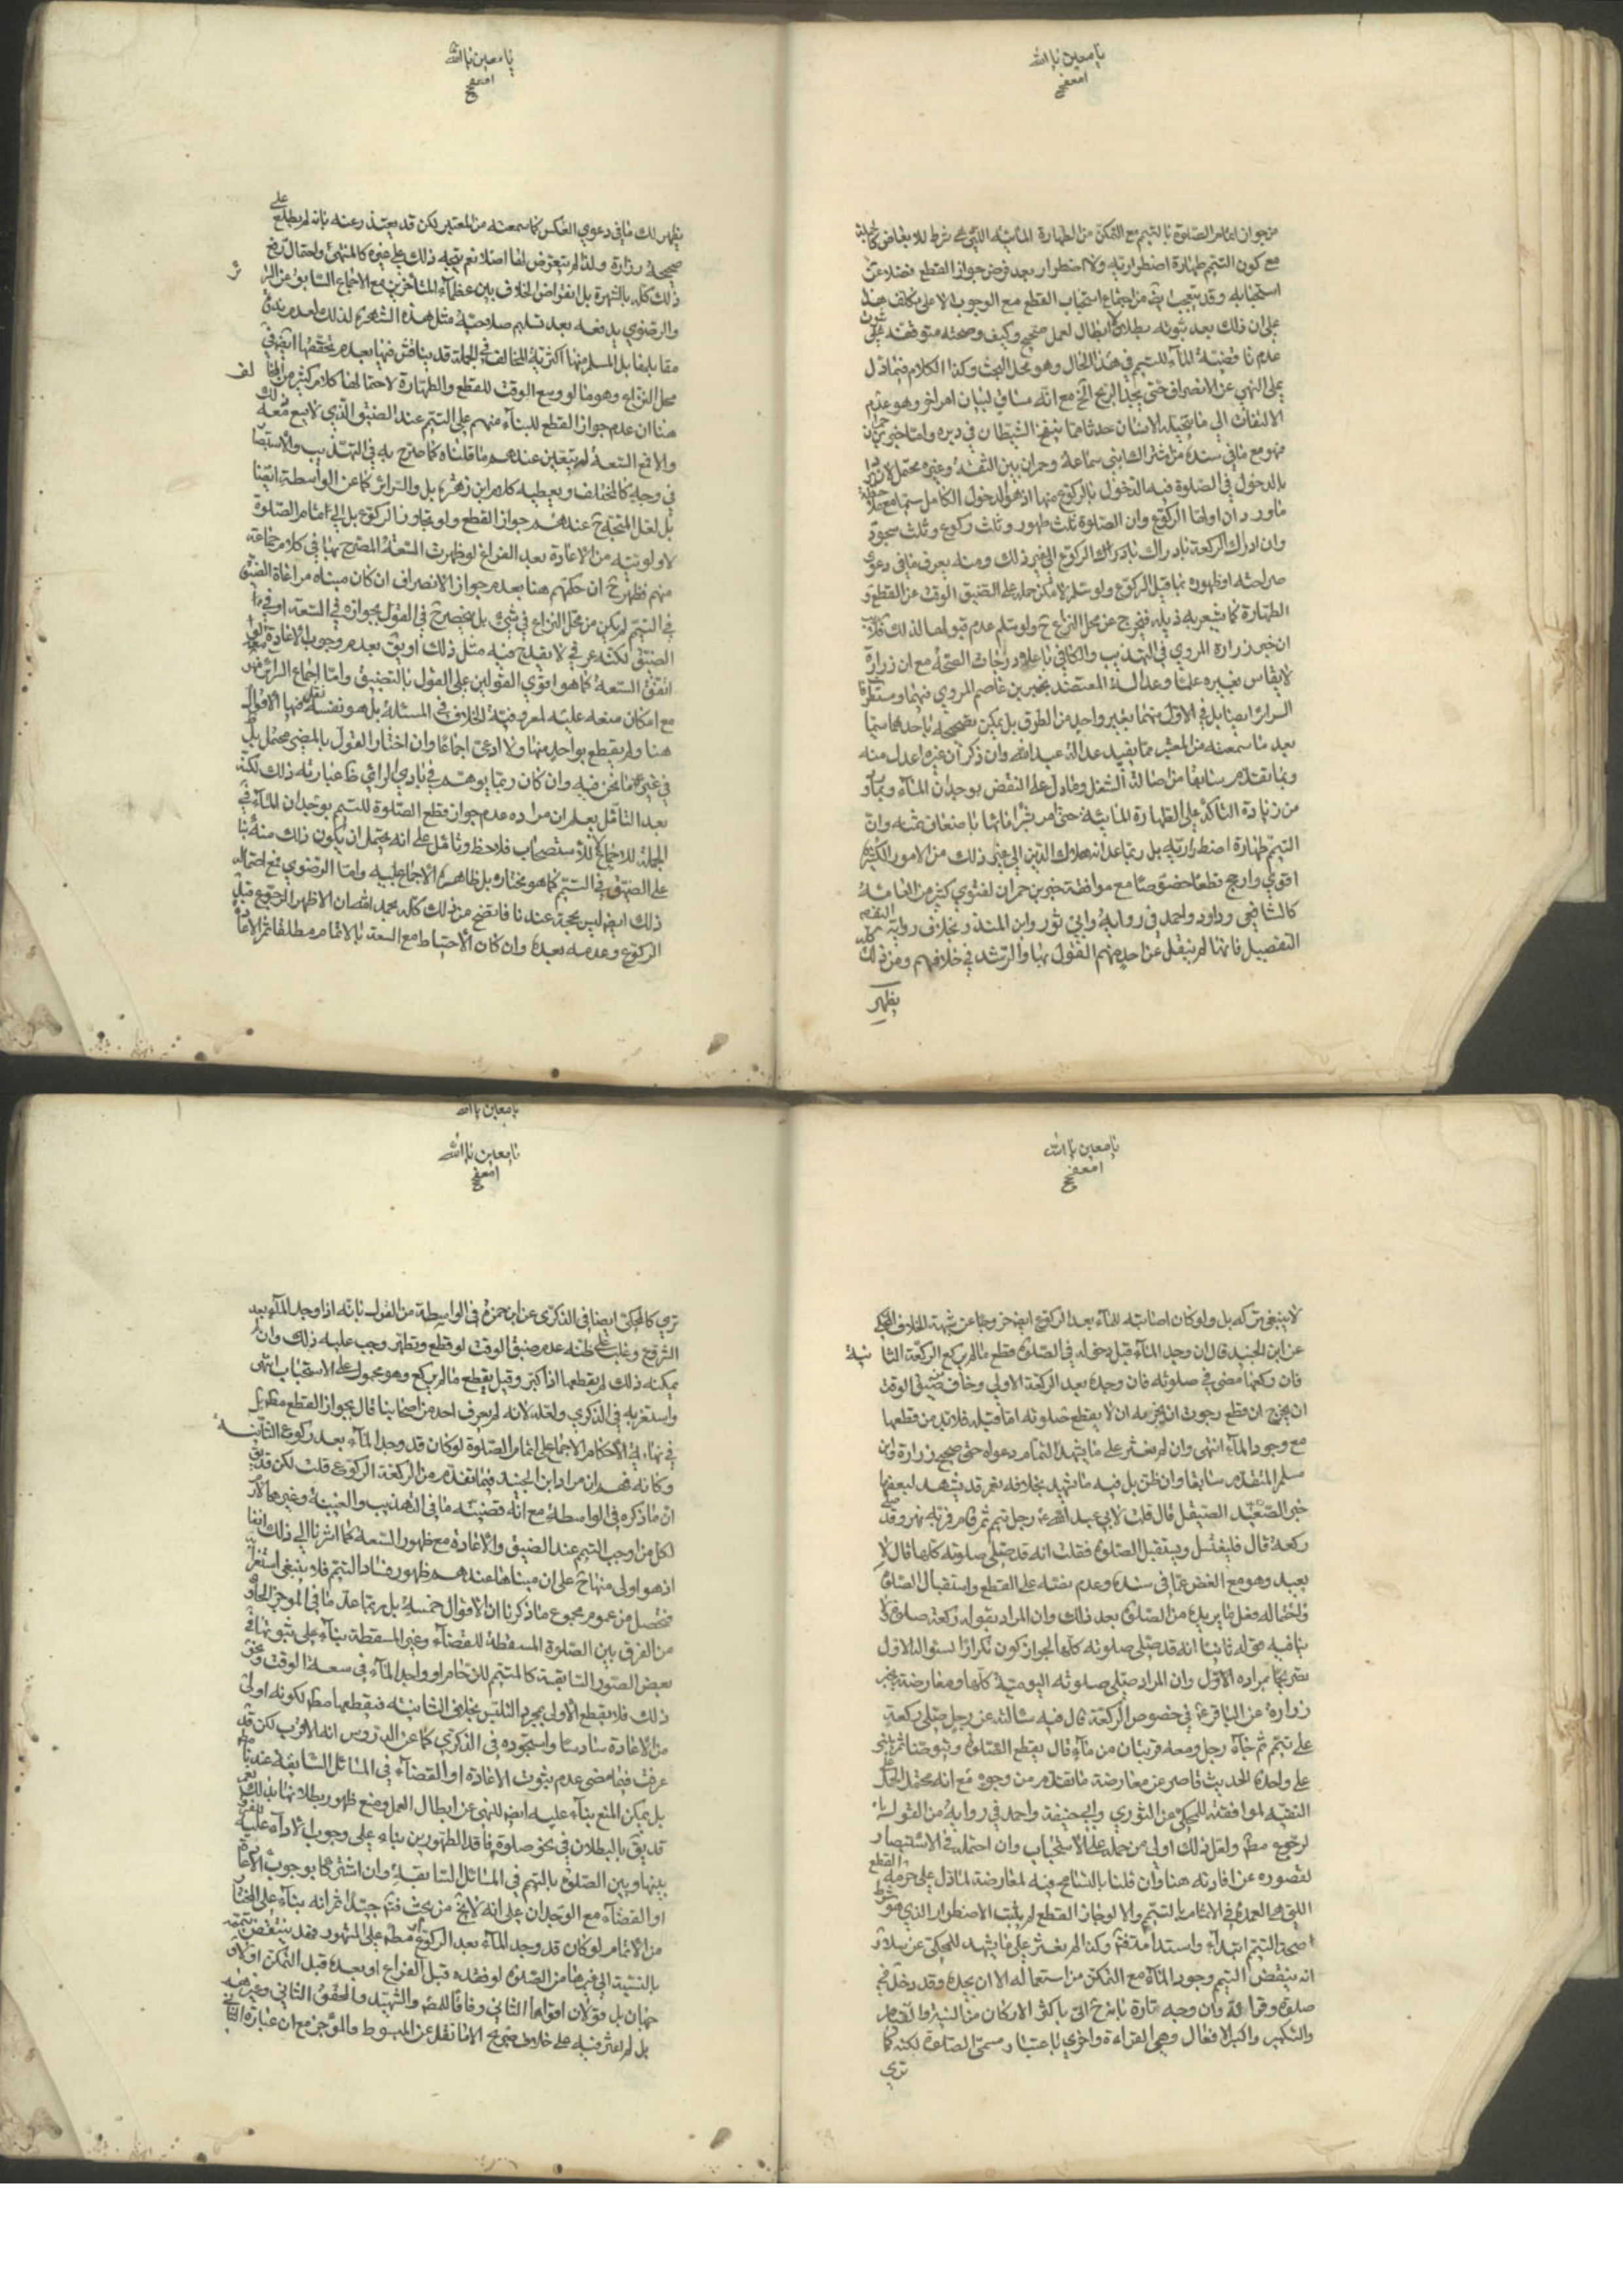 يا معين يا الله
من جواز اتمام الصلوة بالتيمم مع التمكن من الطهارة المائية التي هي شرط للابعاض كالجملة
مع كون التيمم طهارة اضطرارية ولا اضطرار بعد فرض جواز القطع فضلا عن
استحبابه وقد يتعجب ايضا من اجتماع استحباب القطع مع الوجوب الا على تكلف هذا
على ان ذلك بعد ثبوته بطلان ابطال لعمل صحيح وكيف وصحته متوقفة على
عدم ناقضية الماء للتيمم في هذا الحال وهو محل البحث وكذا الكلام فيما دل
على النهي عن الانصراف حتى يجد الريح الخ مع انه مساق لبيان امر اخر وهو عدم
الالتفات الى ما يتخيله الانسان حدثا مما ينفخ الشيطان في دبره واما خبر حمران
فهو مع ما في سنده من اشتراك ابني سماعة وحمران بين الثقة وغيره محتمل لان يراد
بالدخول في الصلوة فيه الدخول بالركوع منها اذ هو الدخول الكامل سيما مع ملاحظة
ما ورد ان اولها الركوع وان الصلوة ثلث طهور وثلث ركوع وثلث سجود
وان ادراك الركعة بادراك الركوع الى غير ذلك ومنه يعرف ما في دعوى
صراحته او ظهوره بما قبل الركوع ولو سلم لامكن حمله على الضيق الوقت عن القطع و
الطهارة كما يشعر به ذيله فيخرج عن محل النزاع ح ولو سلم عدم قبولهما لذلك فلا ريب
ان خبر زرارة المروي في التهذيب والكافي باعلى درجات الصحة مع ان زرارة
لا يقاس بغيره علما وعدالة المعتضد بخبر بن عاصم المروي فيهما ومستطرفا
السرائر ايضا بل في الاول منهما بغير واحد من الطرق بل يمكن تصحيحه باحدهما سيما
بعد ما سمعته من المعتبر مما يفيد عدالة عبد الله وان ذكر ان غيره اعدل منه
وبما تقدم سابقا من اصالة الشغل وما دل على النقض بوجدان الماء وبما و
من زيادة التاكد على الطهارة المائية حتى امر بشرائها باضعاف ثمنه وان
التيمم طهارة اضطرارية بل ربما عد انه هلاك الدين الى غير ذلك من الامور الكثيرة
اقوى وارجح قطعا خصوصا مع موافقة خبر بن حمران لفتوى كثير من العامة
كالشافعي وداود واحمد في رواية وابي ثور وابن المنذر بخلاف رواية
التفصيل فانها لم ينقل عن احد منهم القول بها والرشد في خلافهم ومن ذلك كله
يظهر
يا معين يا الله
يظهر لك ما في دعوى العكس كما سمعته من المعتبر لكن قد يعتذر عنه بانه لم يطلع على
صحيحة زرارة ولذا لم يتعرض لها اصلا نعم يتجه ذلك على غيره كالمنتهى واحتمال ترجيح
ذلك كله بالشهرة بل انقراض الخلاف بين عظماء المتأخرين مع الاجماع السابق عن السرائر
والرضوي يدفعه بعد تسليم صلاحية مثل هذه الشهرة لذلك لعدم ندرة
مقابلها بل المسلم منها اكثرية المخالف في الجملة قد يناقش فيها بعدم تحققها ايضا في
محل النزاع وهو ما لو وسع الوقت للقطع والطهارة لاحتمال كلام كثير من المخالف
هنا ان عدم جواز القطع للبناء منهم على التيمم عند الضيق الذي لا يسع معه ذلك
والا فمع السعة لم يتعين عندهم ما قلناه كما صرح به في التهذيب والاستبصار
في وجه كالمختلف ويعطيه كلام ابن زهرة بل والسرائر كما عن الواسطة ايضا
بل لعل المتجه ح عندهم جواز القطع ولو تجاوز الركوع بل الى اتمام الصلوة
لاولويته من الاعادة بعد الفراغ لو ظهرت السعة المصرح بها في كلام جماعة
منهم فظهر ح ان حكمهم هنا بعدم جواز الانصراف ان كان مبناه مراعاة الضيق
في التيمم لم يكن من محل النزاع في شيء بل ينحصر ح في القول بجوازه في السعة او في
الضيق لكنه عرفي لا يقدح فيه مثل ذلك او يق بعدم وجوب الاعادة لو
اتفق السعة كما هو اقوى القولين على القول بالتضييق واما اجماع السرائر فهو
مع امكان منعه عليه لمعروفية الخلاف في المسئلة بل هو نفسه نقل فيها الاقوال
هنا ولم يقطع بواحد منها ولا ادعى اجماعا وان اختار القول بالمضي محتمل بل ظ
في غير ما نحن فيه وان كان ربما يوهمه في بادي الراي ظ عبارته ذلك لكنه
بعد التامل يعلم ان مراده عدم جواز قطع الصلوة للتيمم بوجدان الماء في
الجملة للاجماع لا للاستصحاب فلاحظ وتامل على انه يحتمل ان يكون ذلك منه بنا
على الضيق في التيمم كما هو مختاره بل ظاهره الاجماع عليه واما الرضوي فمع احتماله
ذلك ايضا ليس بحجة عندنا فاتضح من ذلك كله بحمد الله ان الاظهر الرجوع قبل
الركوع وعدمه بعده وان كان الاحتياط مع السعة بالاتمام مطلقا ثم الاعادة
يا معين يا الله
لا ينبغي تركه بل ولو كان اصابته للماء بعد الركوع ايضا خروجا عن شبهة الخلاف المحكي
عن ابن الجنيد قال ان وجد الماء قبل دخوله في الصلوة قطع ما لم يركع الركعة الثانية
فان ركعها مضى في صلوته فان وجده بعد الركعة الاولى وخاف من ضيق الوقت
ان يخرج ان قطع رجوت ان يجزيه ان لا يقطع صلوته اما قبله فلا بد من قطعها
مع وجود الماء انتهى وان لم نعثر على ما يشهد لتمام دعواه حتى صحيح زرارة وابن
مسلم المتقدم سابقا وان ظن بل فيه ما يشهد بخلافه نعم قد يشهد لبعضها
خبر الصيقل قال قلت لابي عبد الله ع رجل تيمم ثم قام فمر به نهر وقد صلى
ركعة قال فليغتسل ويستقبل الصلوة فقلت انه قد صلى صلوته كلها قال لا
يعيد وهو مع الغض عما في سنده وعدم نصه على القطع واستقبال الصلوة
واحتماله فعل ما يريده من الصلوة بعد ذلك وان المراد بقوله ركعة صلوة لا
ينافيه قوله ثانيا انه قد صلى صلوته كلها لجواز كون تكرارا لسؤاله الاول
تصريحا بمراده الاول وان المراد صلى صلوته اليومية كلها ومعارضة بخبر
زرارة عن الباقر ع في خصوص الركعة قال فيه سالته عن رجل صلى ركعة
على تيمم ثم جاء رجل ومعه قربتان من ماء قال يقطع الصلوة ويتوضا ثم يبني
على واحدة الحديث قاصر عن معارضة ما تقدم من وجوه مع انه محتمل الحمل على
التقية لموافقته للمحكي عن الثوري وابي حنيفة واحمد في رواية من القول بانه
لرجوع مط ولعل ذلك اولى من حمله على الاستحباب وان احتمله في الاستبصار
لقصوره عن افادته هنا وان قلنا بالتسامح فيه لمعارضة لما دل على حرمة القطع
التي هي العمدة في الاتمام بالتيمم والا لو جاز القطع لم يثبت الاضطرار الذي هو شرط
صحة التيمم ابتداء واستدامة فتم وكذا لم نعثر على ما يشهد للمحكي عن سلار
انه ينقض التيمم وجود الماء مع التمكن من استعماله الا ان يجده وقد دخل في
صلوة وقرا وان وجه تارة بانه ح اتى باكثر الاركان من النية والقيام
والتكبير واكبر الافعال وهي القراءة واخرى باعتبار مسمى الصلوة لكنه كما
ترى
يا معين يا الله
يا معين يا الله
ترى كالمحكي ايضا في الذكرى عن ابن حمزة في الواسطة من القول بانه اذا وجد الماء بعد
الشروع وغلب على ظنه عدم ضيق الوقت لو قطع وتطهر وجب عليه ذلك وان لم
يمكنه ذلك لم يقطعها اذا كبر وقيل يقطع ما لم يركع وهو محمول على الاستحباب انتهى
واستغربه في الذكرى ولعله لانه لم يعرف احد من اصحابنا قال بجواز القطع مط بل
في نهاية الاحكام الاجماع على اتمام الصلوة لو كان قد وجد الماء بعد ركوع الثانية
وكانه فهم ان مراد ابن الجنيد فيما تقدم من الركعة الركوع قلت لكن قد يق
ان ما ذكره في الواسطة مع انه قضية ما في التهذيب والغنية وغيرهما لازم
لكل من اوجب التيمم عند الضيق والاعادة مع ظهور السعة كما اشرنا الى ذلك انفا
اذ هو اولى منها ح على ان مبناها عندهم ظهور فساد التيمم فلا ينبغي استغرابه
فتحصل من عموم مجموع ما ذكرنا ان الاقوال خمسة بل ربما عد ما في الموجز الحاوي
من الفرق بين الصلوة المسقطة للقضاء وغير المسقطة بناء على ثبوتها في
بعض الصور السابقة كالمتيمم للزحام او واجد الماء في سعة الوقت ونحو
ذلك فلا يقطع الاولى بمجرد التلبس بخلاف الثانية فيقطعها مط لكونه اولى
من الاعادة سادسا واستجوده في الذكرى كما عن الدروس انه الاقرب لكن قد
عرفت فيما مضى عدم ثبوت الاعادة او القضاء في المسائل السابقة عندنا
بل يمكن المنع بناء عليه ايضا للنهي عن ابطال العمل ومنع ظهور بطلانها بذلك نعم
قد يق بالبطلان في نحو صلوة فاقد الطهورين بناء على وجوب الاداء عليه للفرق
بينها وبين الصلوة بالتيمم في المسائل السابقة وان اشتركا بوجوب الاعادة
او القضاء مع الوجدان على انه لا يخ من بحث فتم جيدا ثم انه بناء على المختار
من الاتمام لو كان قد وجد الماء بعد الركوع او مط على المشهور فقد ينتقض تيممه
بالنسبة الى غيرها من الصلوة لو فقده قبل الفراغ او بعده قبل التمكن اولا و
جهان بل قولان اقواها الثاني وفاقا للمص والشهيد والمحقق الثاني وغيرهم
بل لم نعثر فيه على خلاف صريح الا ما نقل عن المبسوط والموجز مع ان عبارة الثاني